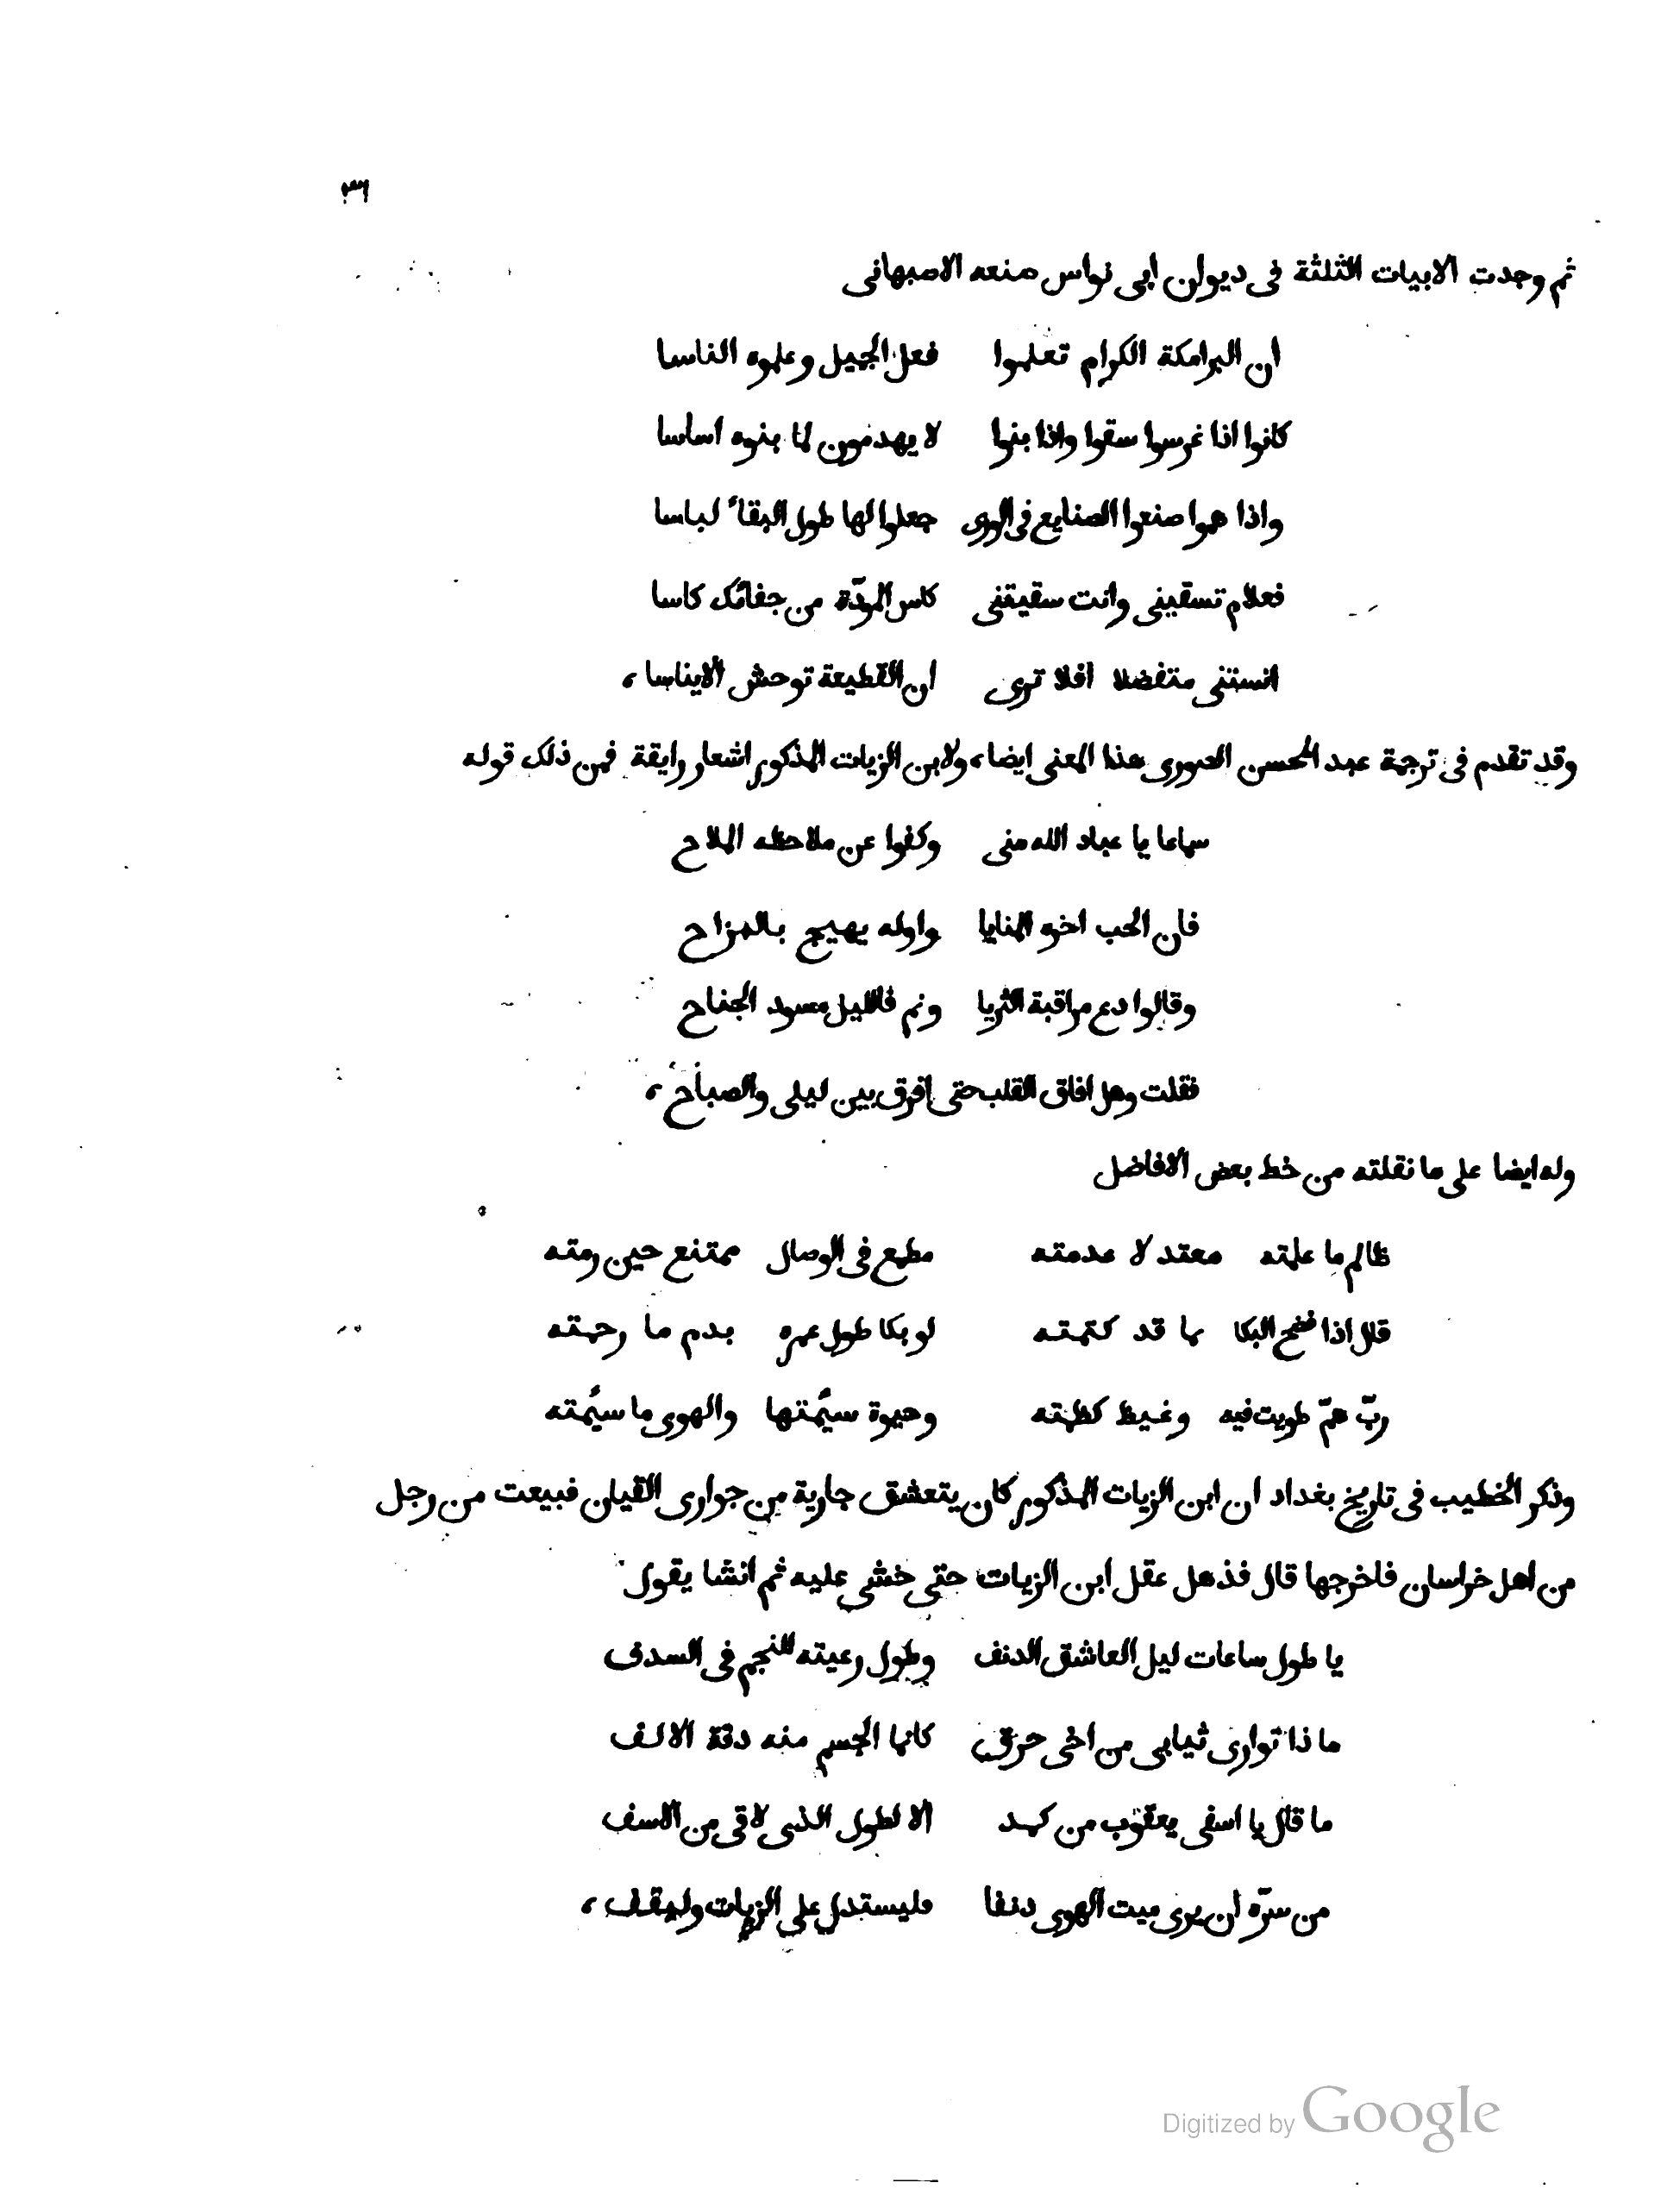 ٣٦
ثم وجدت الابيات الثلثة فى ديوان ابى نواس صنعه الاصبهانى
ان البرامكة الكرام تعلموا فعل الجميل وعلموه الناسا
كانوا اذا غرسوا سقوا واذا بنوا لا يهدمون لما بنوه اساسا
واذا هموا صنعوا الصنايع فى الورى جعلوا لها طول البقاء لباسا
فعلام تسقينى وانت سقيتنى كاس المودّة من جفائك كاسا
انستنى متفضلا افلا ترى ان القطيعة توحش الايناسا،
وقد تقدم فى ترجمة عبد المحسن الصورى هذا المعنى ايضا، ولابن الزيات المذكور اشعار رايقة فمن ذلك قوله
سماعا يا عباد الله منى وكفوا عن ملاحظه الملاح
فان الحب اخره المنايا واوله يهيج بالمزاح
وقالوا دع مراقبة الثريا ونم فالليل مسود الجناح
فقلت وهل افاق القلب حتى افرق بين ليلى والصباح،
وله ايضا على ما نقلته من خط بعض الافاضل
ظالم ما علمته معتد لا عدمته مطمع فى الوصال ممتنع حين رمته
قال اذا فضح البكا بما قد كتمته لو بكا طول عمره بدم ما رحمته
ربّ همّ طويت فيه وغيظ كظمته وحيوة سئمتها والهوى ما سئمته
وذكر الخطيب فى تاريخ بغداد ان ابن الزيات المذكور كان يتعشق جارية من جوارى القيان فبيعت من رجل
من اهل خراسان فاخرجها قال فذهل عقل ابن الزيات حتى خشى عليه ثم انشا يقول
يا طول ساعات ليل العاشق الدنف وطول رعيته للنجم فى السدف
ما ذا توارى ثيابى من اخى حرق كانما الجسم منه دقة الالف
ما قال يا اسفى يعقوب من كمد الا لطول الذى لاقى من الاسف
من سرّه ان يرى ميت الهوى دنفا فليستدل على الزيات وليقف،
Digitized by Google